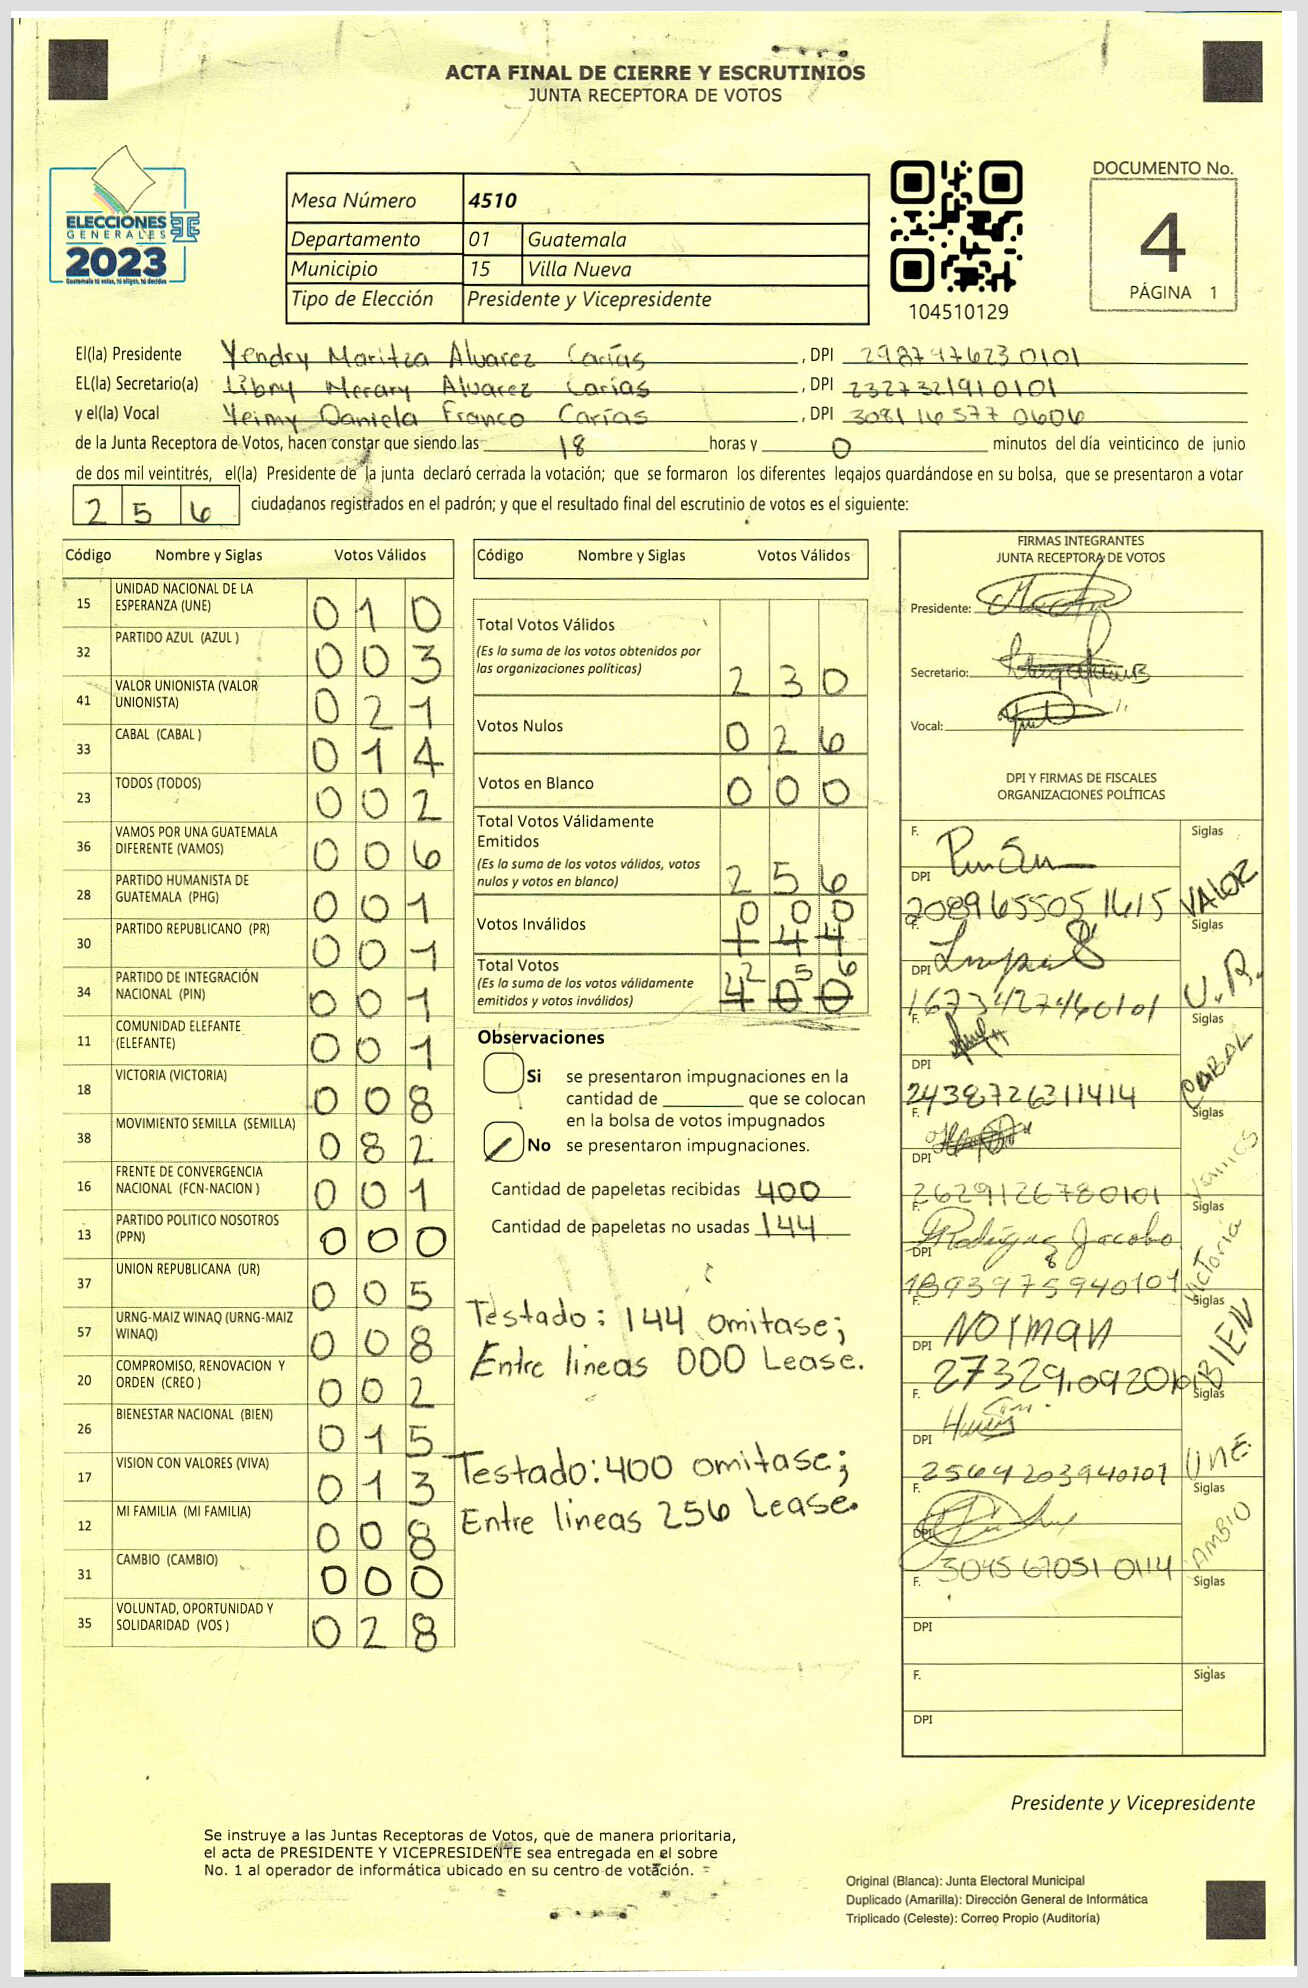 ACTA FINAL DE CIERRE Y ESCRUTINIOS
JUNTA RECEPTORA DE VOTOS
ELECCIONES
GENERALES
2023
Guatemala tú votas, tú eliges, tú decides
Mesa Número 4510
Departamento 01 Guatemala
Municipio 15 Villa Nueva
Tipo de Elección Presidente y Vicepresidente
104510129
DOCUMENTO No.
4
PÁGINA 1
El(la) Presidente Yendry Maritza Alvarez Carías, DPI 2987976230101
EL(la) Secretario(a) Libny Merary Alvarez Carías, DPI 2327321910101
y el(la) Vocal Yeimy Daniela Franco Carías, DPI 3081165770606
de la Junta Receptora de Votos, hacen constar que siendo las 18 horas y 0 minutos del día veinticinco de junio
de dos mil veintitrés, el(la) Presidente de la junta declaró cerrada la votación; que se formaron los diferentes legajos guardándose en su bolsa, que se presentaron a votar
256 ciudadanos registrados en el padrón; y que el resultado final del escrutinio de votos es el siguiente:
Código Nombre y Siglas Votos Válidos
15 UNIDAD NACIONAL DE LA ESPERANZA (UNE) 010
32 PARTIDO AZUL (AZUL ) 003
41 VALOR UNIONISTA (VALOR UNIONISTA) 021
33 CABAL (CABAL ) 014
23 TODOS (TODOS) 002
36 VAMOS POR UNA GUATEMALA DIFERENTE (VAMOS) 006
28 PARTIDO HUMANISTA DE GUATEMALA (PHG) 001
30 PARTIDO REPUBLICANO (PR) 001
34 PARTIDO DE INTEGRACIÓN NACIONAL (PIN) 001
11 COMUNIDAD ELEFANTE (ELEFANTE) 001
18 VICTORIA (VICTORIA) 008
38 MOVIMIENTO SEMILLA (SEMILLA) 082
16 FRENTE DE CONVERGENCIA NACIONAL (FCN-NACION ) 001
13 PARTIDO POLITICO NOSOTROS (PPN) 000
37 UNION REPUBLICANA (UR) 005
57 URNG-MAIZ WINAQ (URNG-MAIZ WINAQ) 008
20 COMPROMISO, RENOVACION Y ORDEN (CREO ) 002
26 BIENESTAR NACIONAL (BIEN) 015
17 VISION CON VALORES (VIVA) 013
12 MI FAMILIA (MI FAMILIA) 008
31 CAMBIO (CAMBIO) 000
35 VOLUNTAD, OPORTUNIDAD Y SOLIDARIDAD (VOS ) 028
Código Nombre y Siglas Votos Válidos
Total Votos Válidos
(Es la suma de los votos obtenidos por
las organizaciones políticas) 230
Votos Nulos 026
Votos en Blanco 000
Total Votos Válidamente
Emitidos
(Es la suma de los votos válidos, votos
nulos y votos en blanco) 256
Votos Inválidos 000 144
Total Votos 256
(Es la suma de los votos válidamente
emitidos y votos inválidos) 400
Observaciones
Si se presentaron impugnaciones en la
cantidad de ________ que se colocan
en la bolsa de votos impugnados
No se presentaron impugnaciones.
Cantidad de papeletas recibidas 400
Cantidad de papeletas no usadas 144
Testado: 144 omitase;
Entre lineas 000 Lease.
Testado: 400 omitase;
Entre lineas 256 Lease.
FIRMAS INTEGRANTES
JUNTA RECEPTORA DE VOTOS
Presidente:
Secretario:
Vocal:
DPI Y FIRMAS DE FISCALES
ORGANIZACIONES POLÍTICAS
F. Siglas VALOR
DPI 2089655051615
F. Siglas U.R.
DPI 1673427460101
F. Siglas CABAL
DPI 2438726311414
F. Siglas Vamos
DPI 2629126780101
F. Rodríguez Jacobo Siglas Victoria
DPI 1893975940101
F. Norman Siglas BIEN
DPI
F. Siglas UNE
DPI 2564203940101
F. Siglas CAMBIO
DPI 3045670510114
F. Siglas
DPI
F. Siglas
DPI
Presidente y Vicepresidente
Se instruye a las Juntas Receptoras de Votos, que de manera prioritaria,
el acta de PRESIDENTE Y VICEPRESIDENTE sea entregada en el sobre
No. 1 al operador de informática ubicado en su centro de votación.
Original (Blanca): Junta Electoral Municipal
Duplicado (Amarilla): Dirección General de Informática
Triplicado (Celeste): Correo Propio (Auditoría)